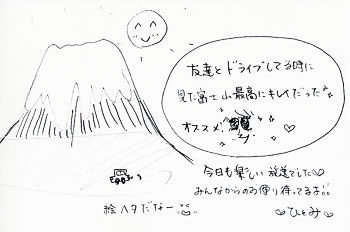 友達とドライブしてる時に
見た富士山最高にキレイだった
オススメ
今日も楽しい放送でした♡
みんなからのお便り待ってるよ!!
♡ひとみ♡
絵ヘタだなー